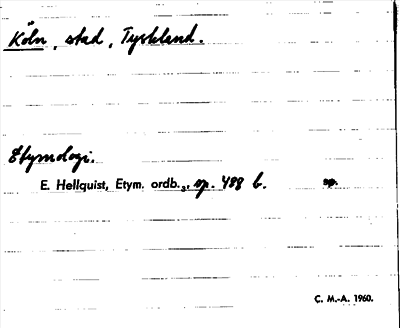 Köln, stad, Tyskland.
Etymologi.
E. Hellquist, Etym. ordb.3, sp. 488 b. sp.
C. M.-A. 1960.